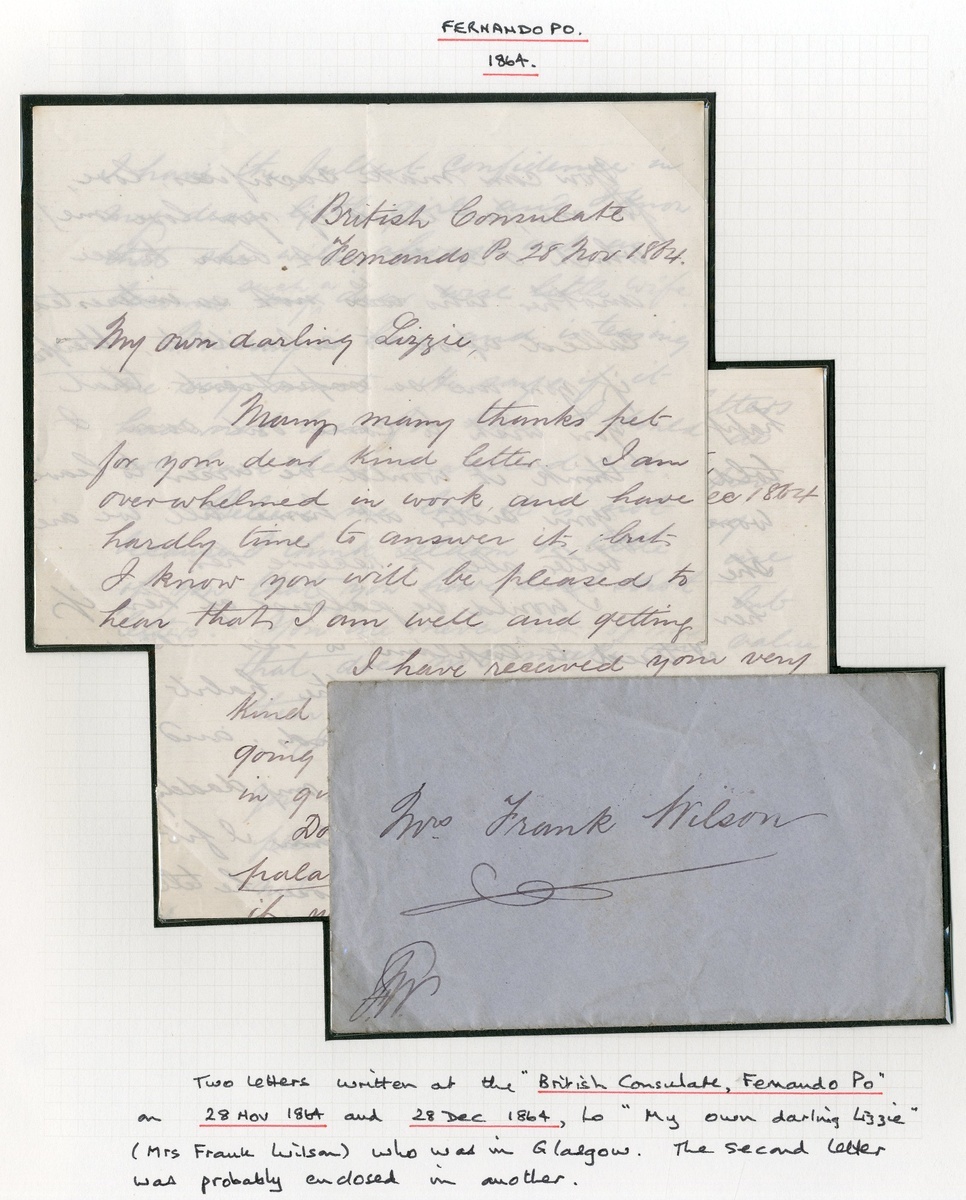 FERNANDO PO.
1864.
British Consulate
Fernando Po 28 Nov 1864.
My own darling Lizzie,
Many many thanks pet
for your dear kind letter. I am
overwhelmed in work and have
hardly time to answer it, but
I know you will be pleased to
hear that I am well and getting
ec 1864
I have received your very
kind
going
in qu
Do
pala
if y
Mrs Frank Wilson
Two letters written at the "British Consulate, Fernando Po"
on 28 Nov 1864 and 28 Dec 1864, to "My own darling Lizzie"
(Mrs Frank Wilson) who was in Glasgow. The second letter
was probably enclosed in another.